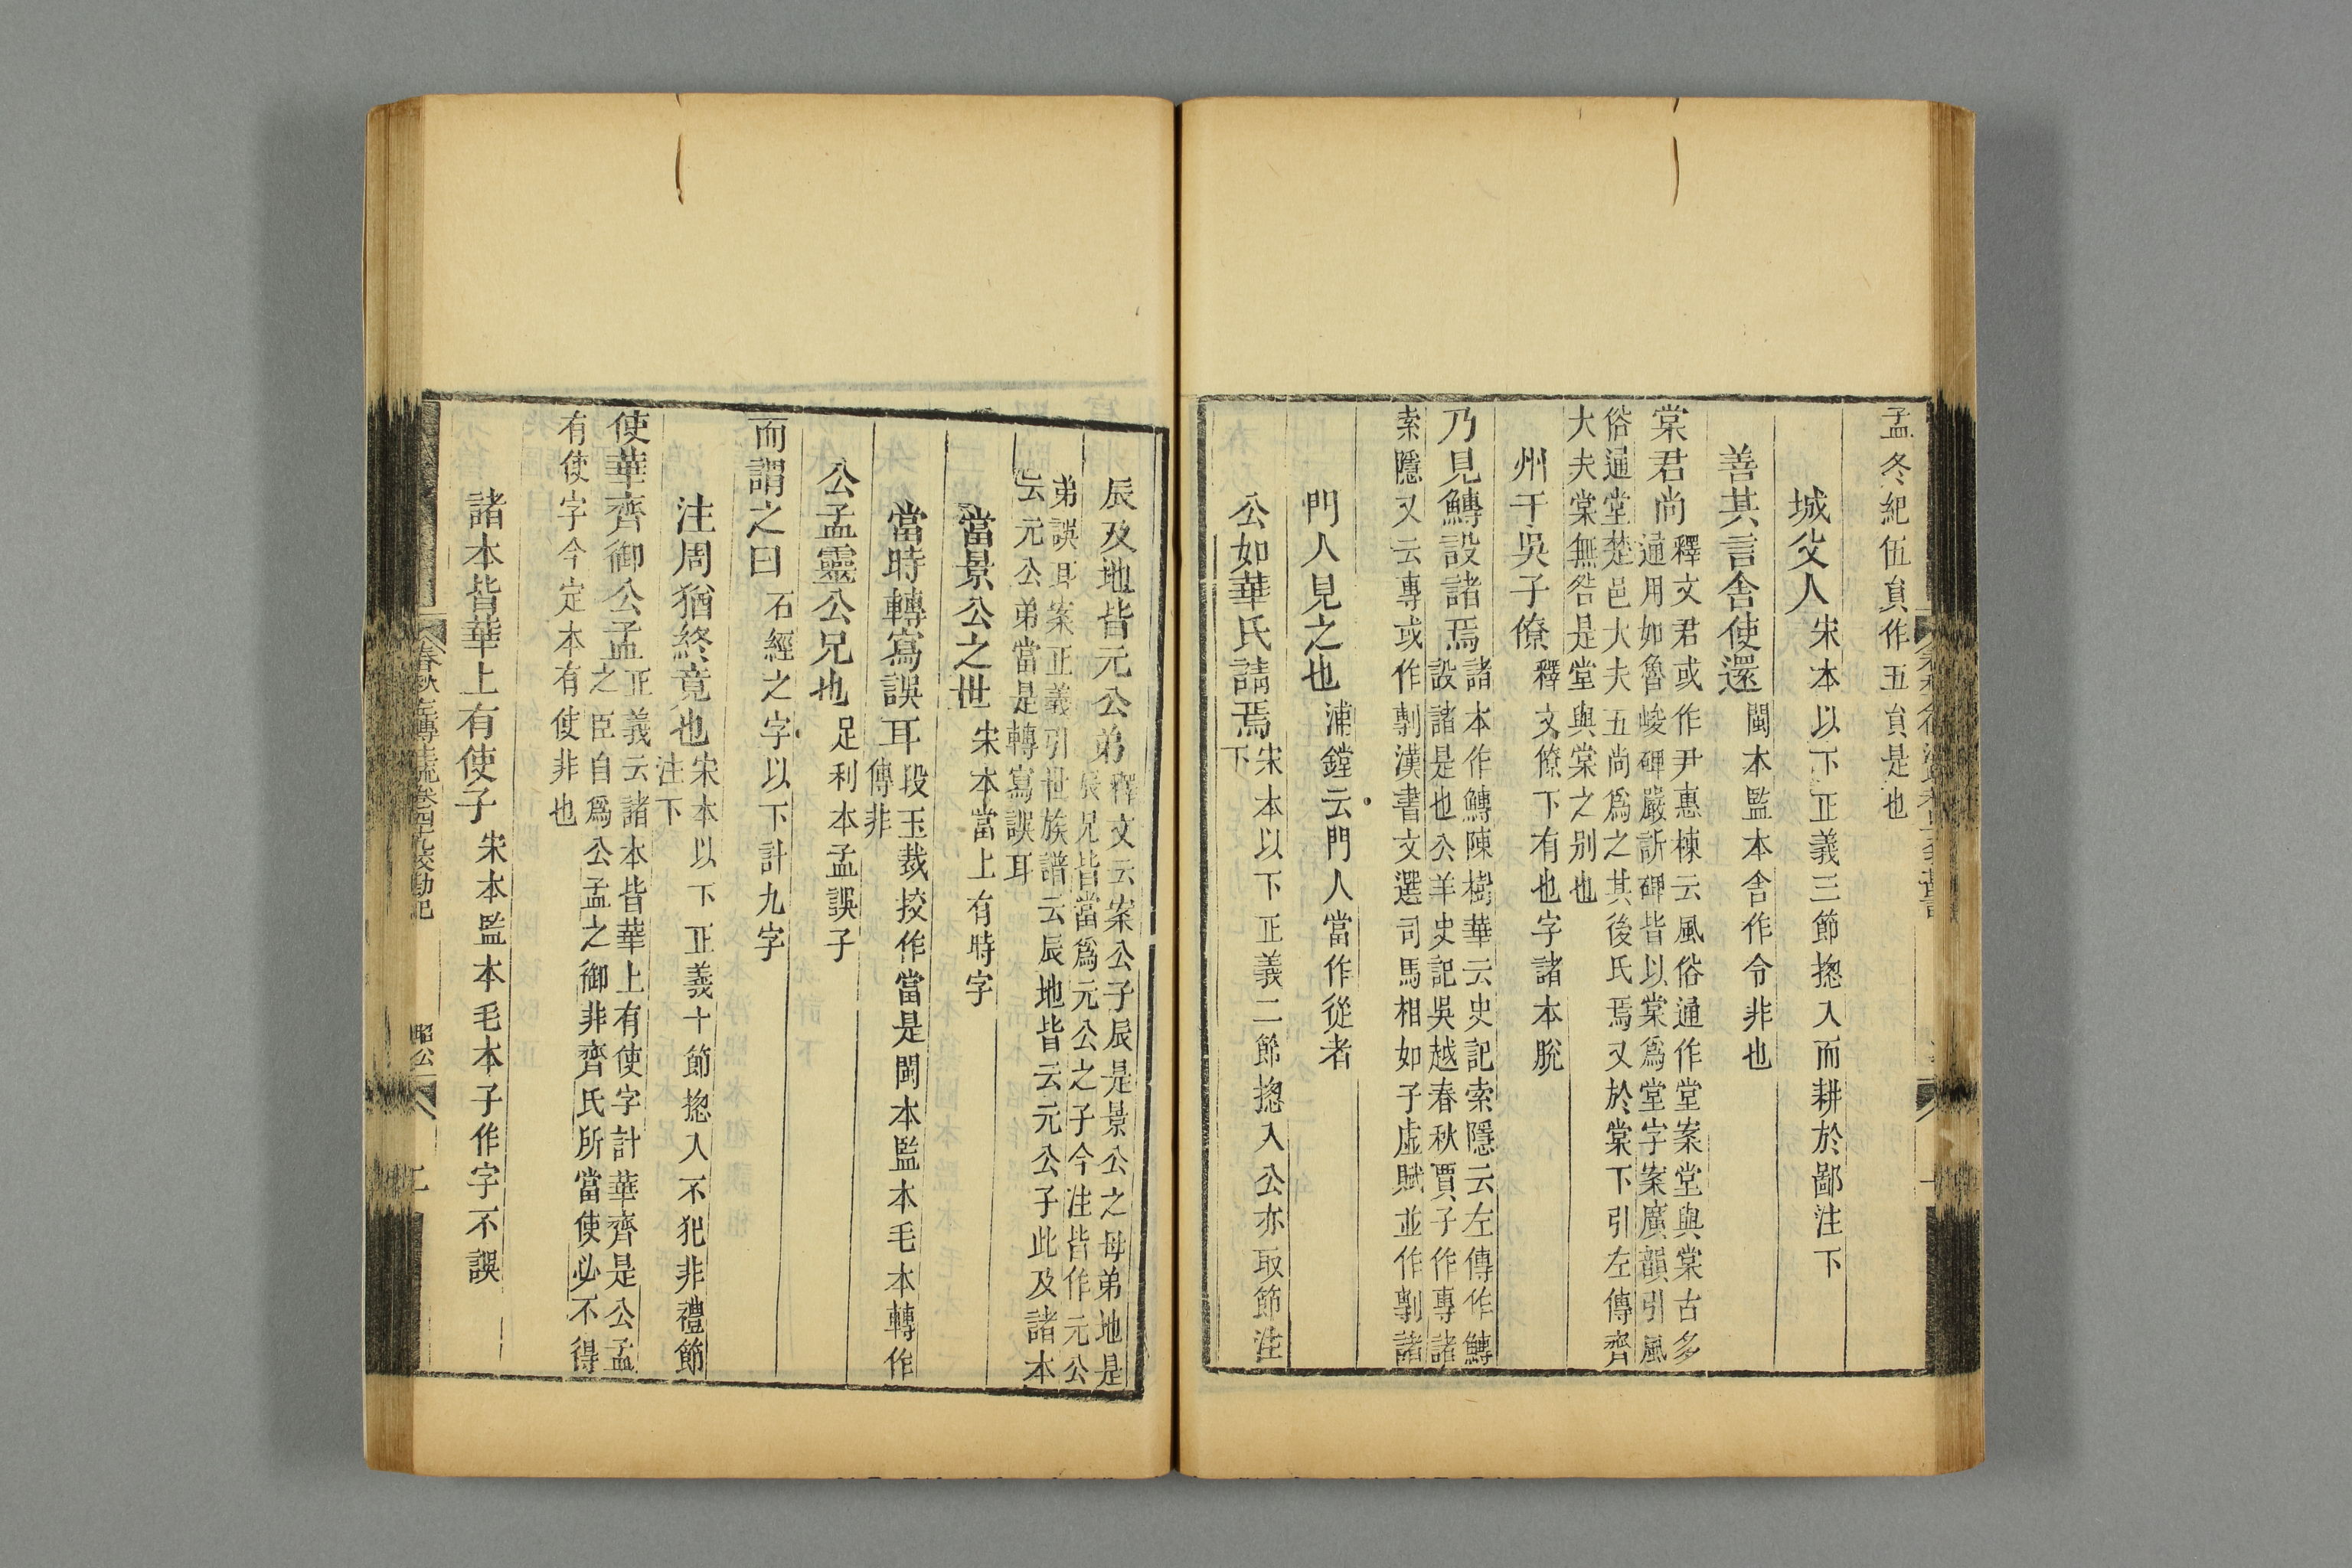 孟冬紀伍員作五員是也
城父人宋本以下正義三節揔入而耕於鄙注下
善其言舍使還閩本監本舍作令非也
棠君尚釋文君或作尹惠棟云風俗通作堂案堂與棠古多
通用如魯峻碑嚴訢碑皆以棠爲堂字案廣韻引風
俗通堂楚邑大夫五尚爲之其後氏焉又於棠下引左傳齊
大夫棠無咎是堂與棠之別也
州于吳子僚釋文僚下有也字諸本脫
乃見鱄設諸焉諸本作鱄陳樹華云史記索隱云左傳作鱄
設諸是也公羊史記吳越春秋賈子作專諸
索隱又云專或作剸漢書文選司馬相如子虛賦並作剸諸
門人見之也浦鏜云門人當作從者
公如華氏請焉宋本以下正義二節揔入公亦取節注
下
辰及地皆元公弟釋文云案公子辰是景公之母弟地是
辰兄皆當爲元公之子今注皆作元公
弟誤耳案正義引世族譜云辰地皆云元公子此及諸本
云元公弟當是轉寫誤耳
當景公之世宋本當上有時字
當時轉寫誤耳段玉裁挍作當是閩本監本毛本轉作
傳非
公孟靈公兄也足利本孟誤子
而謂之曰石經之字以下計九字
注周猶終竟也宋本以下正義十節揔入不犯非禮節
注下
使華齊御公孟正義云諸本皆華上有使字計華齊是公孟
之臣自爲公孟之御非齊氏所當使必不得
有使字今定本有使非也
諸本皆華上有使子宋本監本毛本子作字不誤
春秋左傳注疏卷四十九挍勘記
昭公